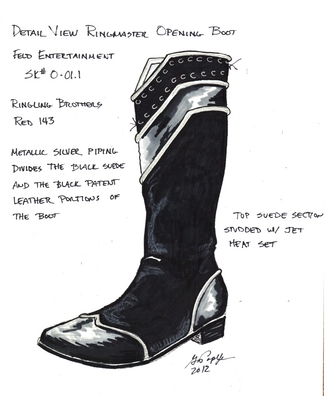 DETAIL VIEW RINGMASTER OPENING BOOT
FELD ENTERTAINMENT
SK# 0-01.1
RINGLING BROTHERS
RED 143
METALLIC SILVER PIPING
DIVIDES THE BLACK SUEDE
AND THE BLACK PATENT
LEATHER PORTIONS OF
THE BOOT
TOP SUEDE SECTION
STUDDED W/ JET
HEAT SET
2012